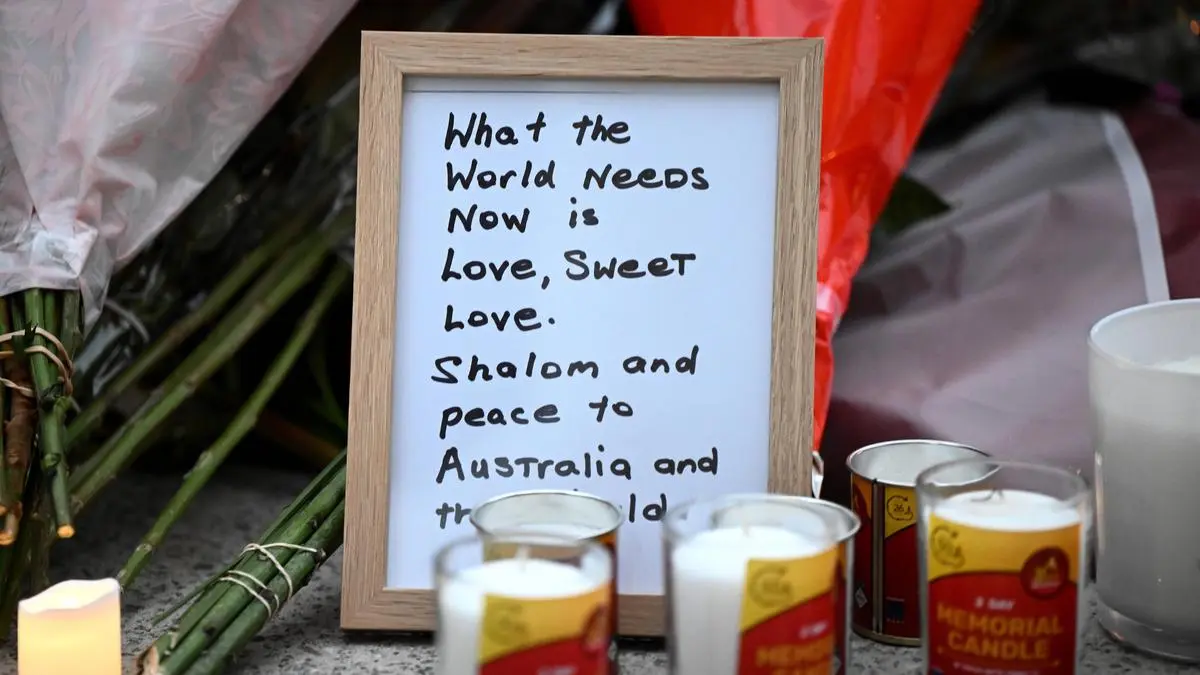 What the
World Needs
Now is
Love, Sweet
Love.
Shalom and
peace to
Australia and
MEMORIAL
CANDLE
DAY
MEMORIAL